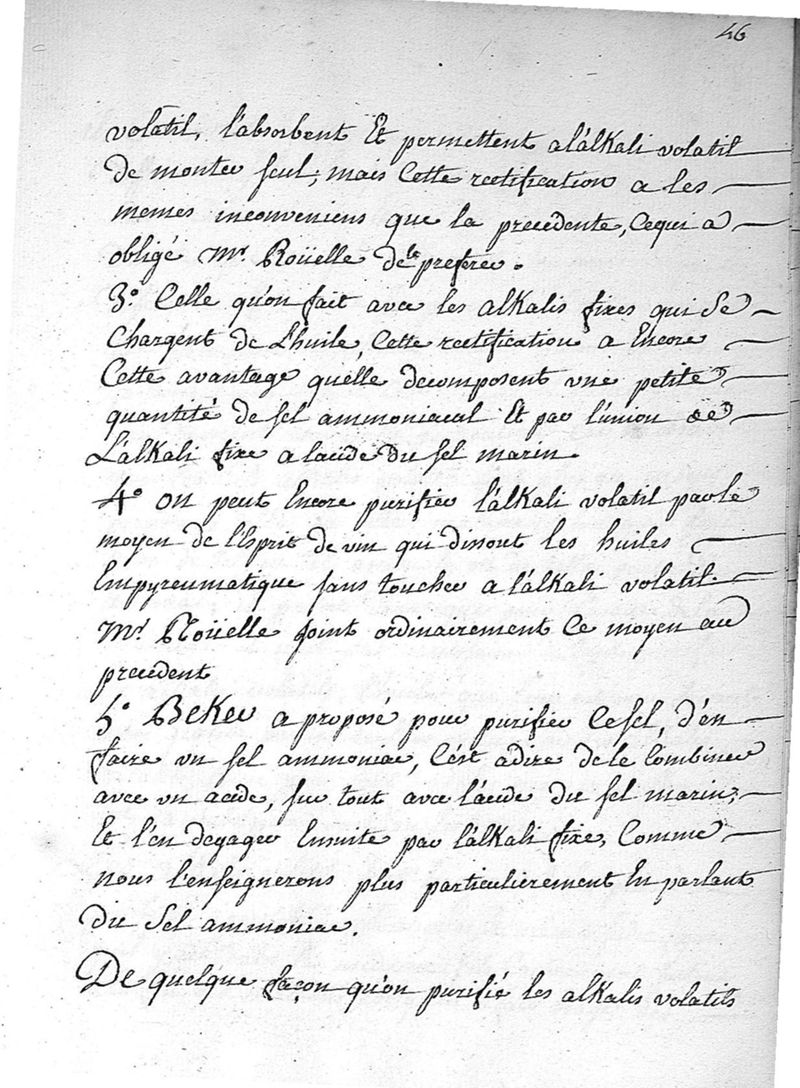 46
volatil, l'absorbent Et permettent a l'alkali volatil
de monter seul; mais Cette rectification a les
memes inconveniens que la precedente, Cequi a
obligé Mr. Roüelle de le preferer.
3.° Celle qu'on fait avec les alkalis fixes qui se
Chargent de L'huile, Cette rectification a Encore
Cette avantage quelle decomposent une petite
quantité de sel ammoniacal Et par l'union de
L'alkali fixe a lacide du sel marin.
4.° on peut Encore purifier l'alkali volatil par le
moyen de l'Esprit de vin qui dissout les huiles
Empyreumatique sans toucher a l'alkali volatil.
Mr Roüelle joint ordinairement Ce moyen au
precedent
5.° Beker a proposé pour purifier Cesel, d'en
faire un sel ammoniac, C'est adire de le Combiner
avec un acide, sur tout avec l'acide du sel marin,
Et l'en degager Ensuite par l'alkali fixe, Comme
nous l'enseignerons plus particulierement En parlant
du Sel ammoniac.
De quelque façon qu'on purifié les alkalis volatils